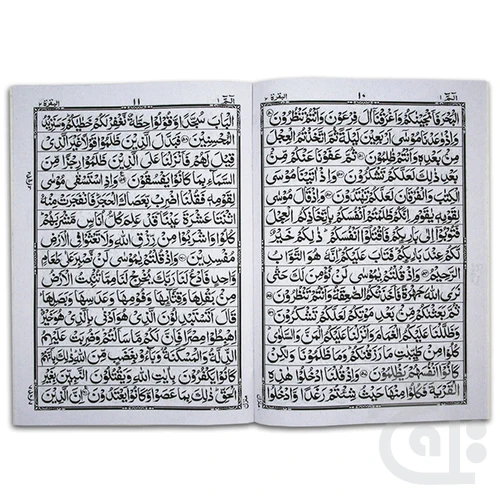 الٓمّٓ ١
١٠
البقرة ٢
الْبَحْرَ فَاَنْجَيْنٰكُمْ وَاَغْرَقْنَآ اٰلَ فِرْعَوْنَ وَاَنْتُمْ تَنْظُرُوْنَ
وَاِذْ وٰعَدْنَا مُوْسٰٓى اَرْبَعِيْنَ لَيْلَةً ثُمَّ اتَّخَذْتُمُ الْعِجْلَ
مِنْۢ بَعْدِهٖ وَاَنْتُمْ ظٰلِمُوْنَ ثُمَّ عَفَوْنَا عَنْكُمْ مِّنْۢ
بَعْدِ ذٰلِكَ لَعَلَّكُمْ تَشْكُرُوْنَ وَاِذْ اٰتَيْنَا مُوْسَى
الْكِتٰبَ وَالْفُرْقَانَ لَعَلَّكُمْ تَهْتَدُوْنَ وَاِذْ قَالَ مُوْسٰى
لِقَوْمِهٖ يٰقَوْمِ اِنَّكُمْ ظَلَمْتُمْ اَنْفُسَكُمْ بِاتِّخَاذِكُمُ الْعِجْلَ
فَتُوْبُوْٓا اِلٰى بَارِئِكُمْ فَاقْتُلُوْٓا اَنْفُسَكُمْ ذٰلِكُمْ خَيْرٌ
لَّكُمْ عِنْدَ بَارِئِكُمْ فَتَابَ عَلَيْكُمْ اِنَّهٗ هُوَ التَّوَّابُ
الرَّحِيْمُ وَاِذْ قُلْتُمْ يٰمُوْسٰى لَنْ نُّؤْمِنَ لَكَ حَتّٰى
نَرَى اللّٰهَ جَهْرَةً فَاَخَذَتْكُمُ الصّٰعِقَةُ وَاَنْتُمْ تَنْظُرُوْنَ
ثُمَّ بَعَثْنٰكُمْ مِّنْۢ بَعْدِ مَوْتِكُمْ لَعَلَّكُمْ تَشْكُرُوْنَ
وَظَلَّلْنَا عَلَيْكُمُ الْغَمَامَ وَاَنْزَلْنَا عَلَيْكُمُ الْمَنَّ وَالسَّلْوٰى
كُلُوْا مِنْ طَيِّبٰتِ مَا رَزَقْنٰكُمْ وَمَا ظَلَمُوْنَا وَلٰكِنْ
كَانُوْٓا اَنْفُسَهُمْ يَظْلِمُوْنَ وَاِذْ قُلْنَا ادْخُلُوْا هٰذِهِ
الْقَرْيَةَ فَكُلُوْا مِنْهَا حَيْثُ شِئْتُمْ رَغَدًا وَّادْخُلُوا
الٓمّٓ ١
١١
البقرة ٢
الْبَابَ سُجَّدًا وَّقُوْلُوْا حِطَّةٌ نَّغْفِرْ لَكُمْ خَطٰيٰكُمْ وَسَنَزِيْدُ
الْمُحْسِنِيْنَ فَبَدَّلَ الَّذِيْنَ ظَلَمُوْا قَوْلًا غَيْرَ الَّذِيْ
قِيْلَ لَهُمْ فَاَنْزَلْنَا عَلَى الَّذِيْنَ ظَلَمُوْا رِجْزًا مِّنَ
السَّمَآءِ بِمَا كَانُوْا يَفْسُقُوْنَ وَاِذِ اسْتَسْقٰى مُوْسٰى
لِقَوْمِهٖ فَقُلْنَا اضْرِبْ بِّعَصَاكَ الْحَجَرَ فَانْفَجَرَتْ مِنْهُ
اثْنَتَا عَشْرَةَ عَيْنًا قَدْ عَلِمَ كُلُّ اُنَاسٍ مَّشْرَبَهُمْ
كُلُوْا وَاشْرَبُوْا مِنْ رِّزْقِ اللّٰهِ وَلَا تَعْثَوْا فِى الْاَرْضِ
مُفْسِدِيْنَ وَاِذْ قُلْتُمْ يٰمُوْسٰى لَنْ نَّصْبِرَ عَلٰى طَعَامٍ
وَّاحِدٍ فَادْعُ لَنَا رَبَّكَ يُخْرِجْ لَنَا مِمَّا تُنْۢبِتُ الْاَرْضُ
مِنْۢ بَقْلِهَا وَقِثَّآئِهَا وَفُوْمِهَا وَعَدَسِهَا وَبَصَلِهَا
قَالَ اَتَسْتَبْدِلُوْنَ الَّذِيْ هُوَ اَدْنٰى بِالَّذِيْ هُوَ خَيْرٌ
اِهْبِطُوْا مِصْرًا فَاِنَّ لَكُمْ مَّا سَاَلْتُمْ وَضُرِبَتْ عَلَيْهِمُ
الذِّلَّةُ وَالْمَسْكَنَةُ وَبَآءُوْ بِغَضَبٍ مِّنَ اللّٰهِ ذٰلِكَ بِاَنَّهُمْ
كَانُوْا يَكْفُرُوْنَ بِاٰيٰتِ اللّٰهِ وَيَقْتُلُوْنَ النَّبِيّٖنَ بِغَيْرِ
الْحَقِّ ذٰلِكَ بِمَا عَصَوْا وَّكَانُوْا يَعْتَدُوْنَ اِنَّ الَّذِيْنَ